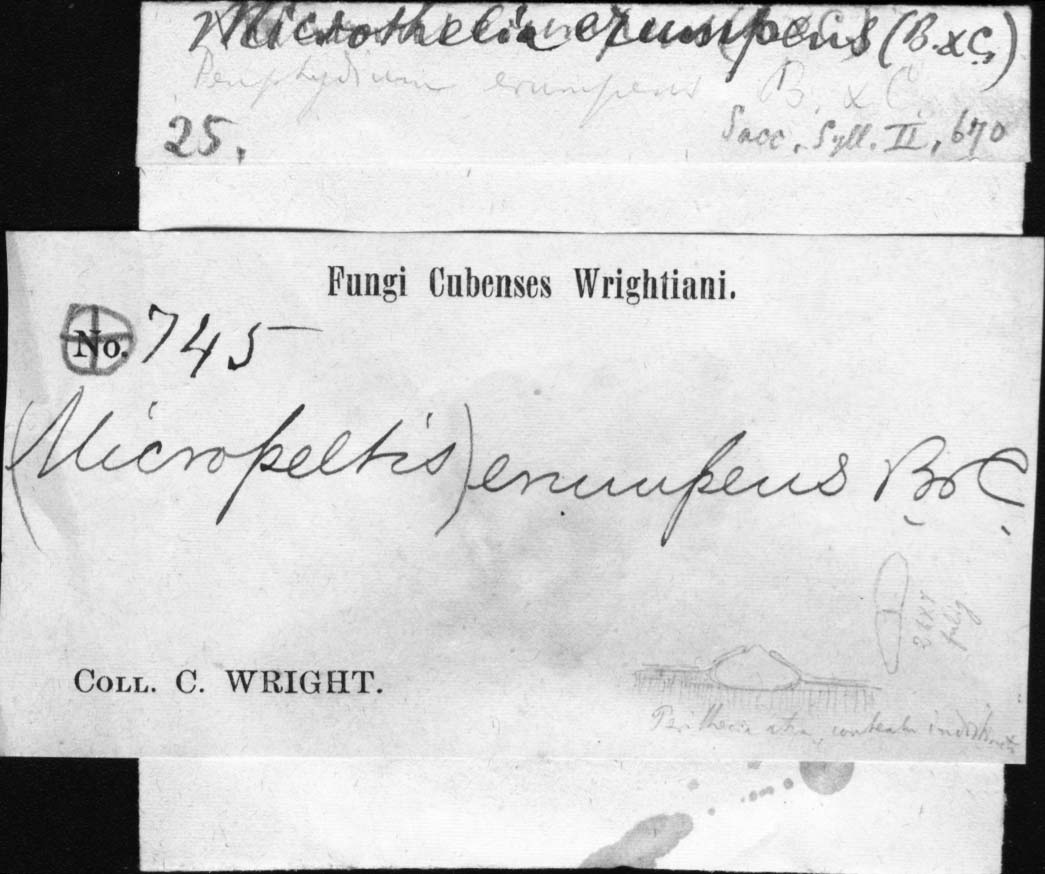 Microthelia erumpens (B. & C.)
erumpens B. & C.
25.
Sacc. Syll. II, 670
Fungi Cubenses Wrightiani.
No. 745
(Micropeltis) erumpens B & C.
26x8
fulig
COLL. C. WRIGHT.
Perithecia atra,